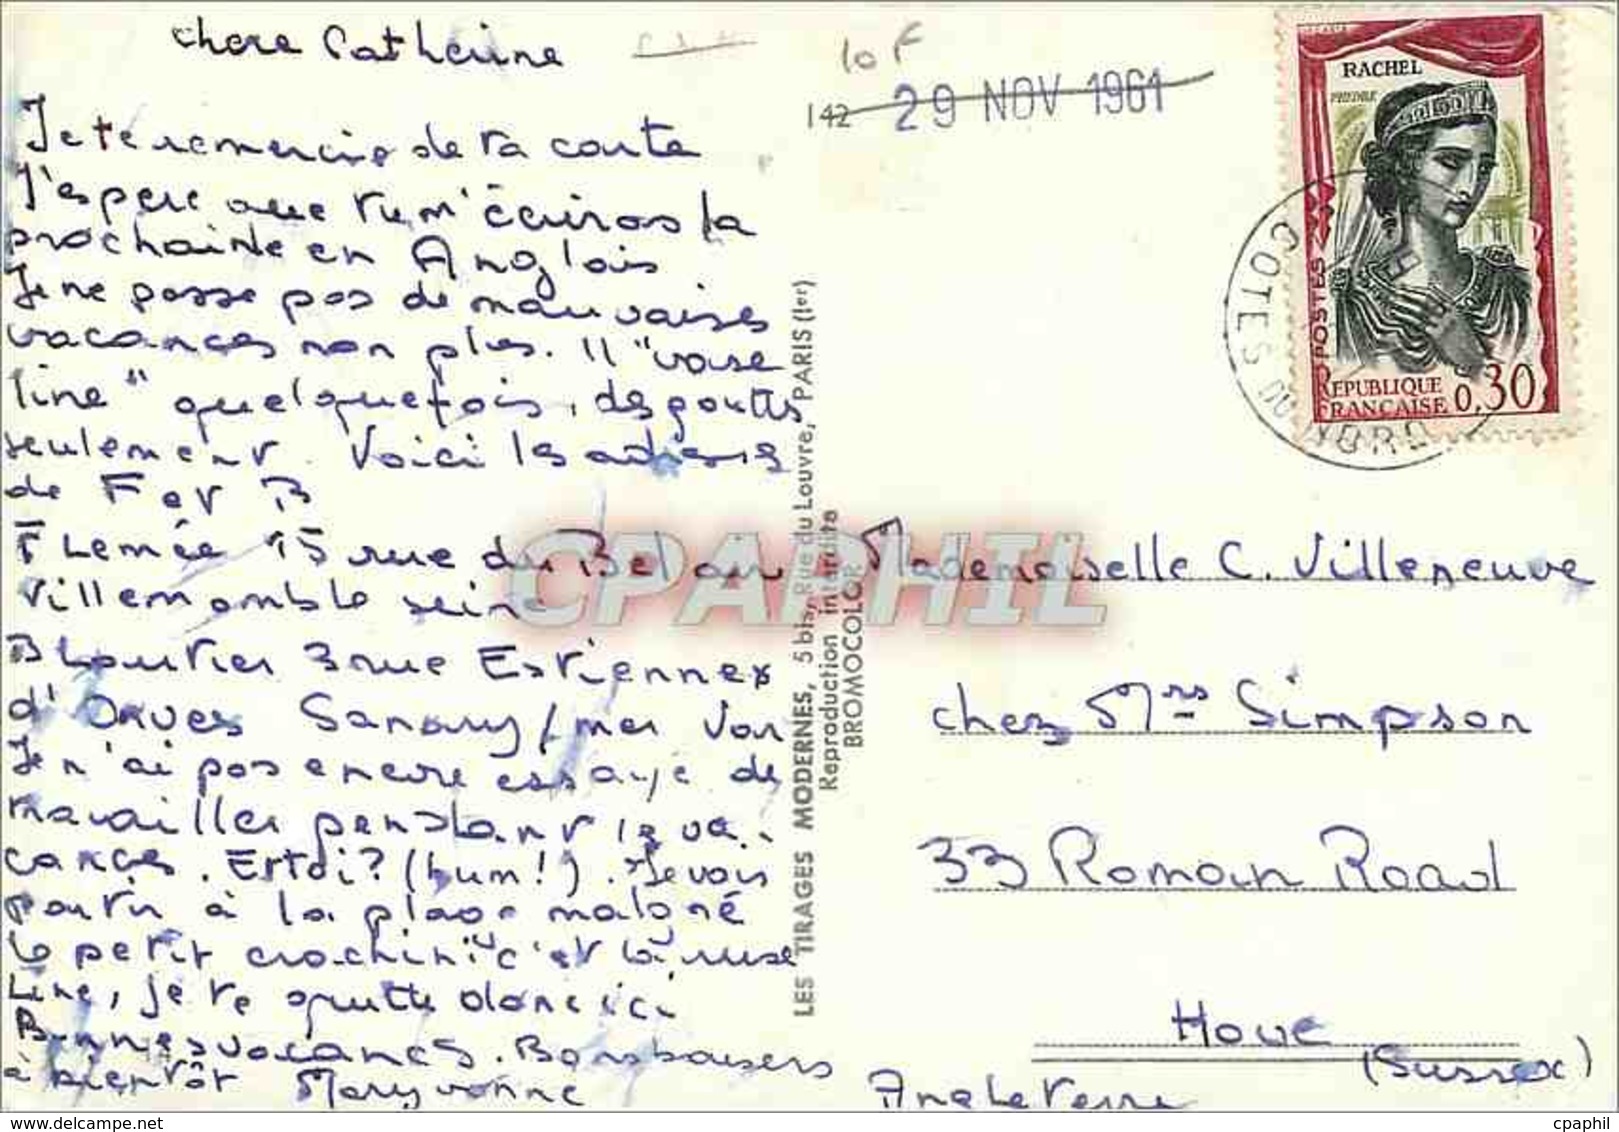 Chere Catherine
Je te remercie de ta carte
J'espere que tu m'écriras la
prochaine en Anglais
Je ne passe pas de mauvaises
vacances non plus. Il "vase
line" quelquefois, des gouttes
seulement. Voici les adresses
de F et B
F Lemée 15 rue du Belair
Villemomble seine
B Lourtier 3 rue Estiennes
d'Orves Sanary/mer Var
Je n'ai pas encore essayé de
travailler pendant les va-
cances. Et toi? (hum!). Je vais
partir à la plage malgré
le petit crachin c'est la
Line, je te quitte donc ici
Bonnes vacances. Bons baisers
à bientôt Maryvonne
10 F
142 29 NOV 1961
RACHEL
PHEDRE
POSTES
REPUBLIQUE
FRANCAISE 0,30
COTES DU NORD
LES TIRAGES MODERNES, 5 bis, Rue du Louvre, PARIS (1er)
Reproduction interdite
BROMOCOLOR
CPAPHIL
Mademoiselle C. Villeneuve
chez Mrs Simpson
33 Roman Road
Hove
(Sussex)
Angleterre
www.cpaphil.com